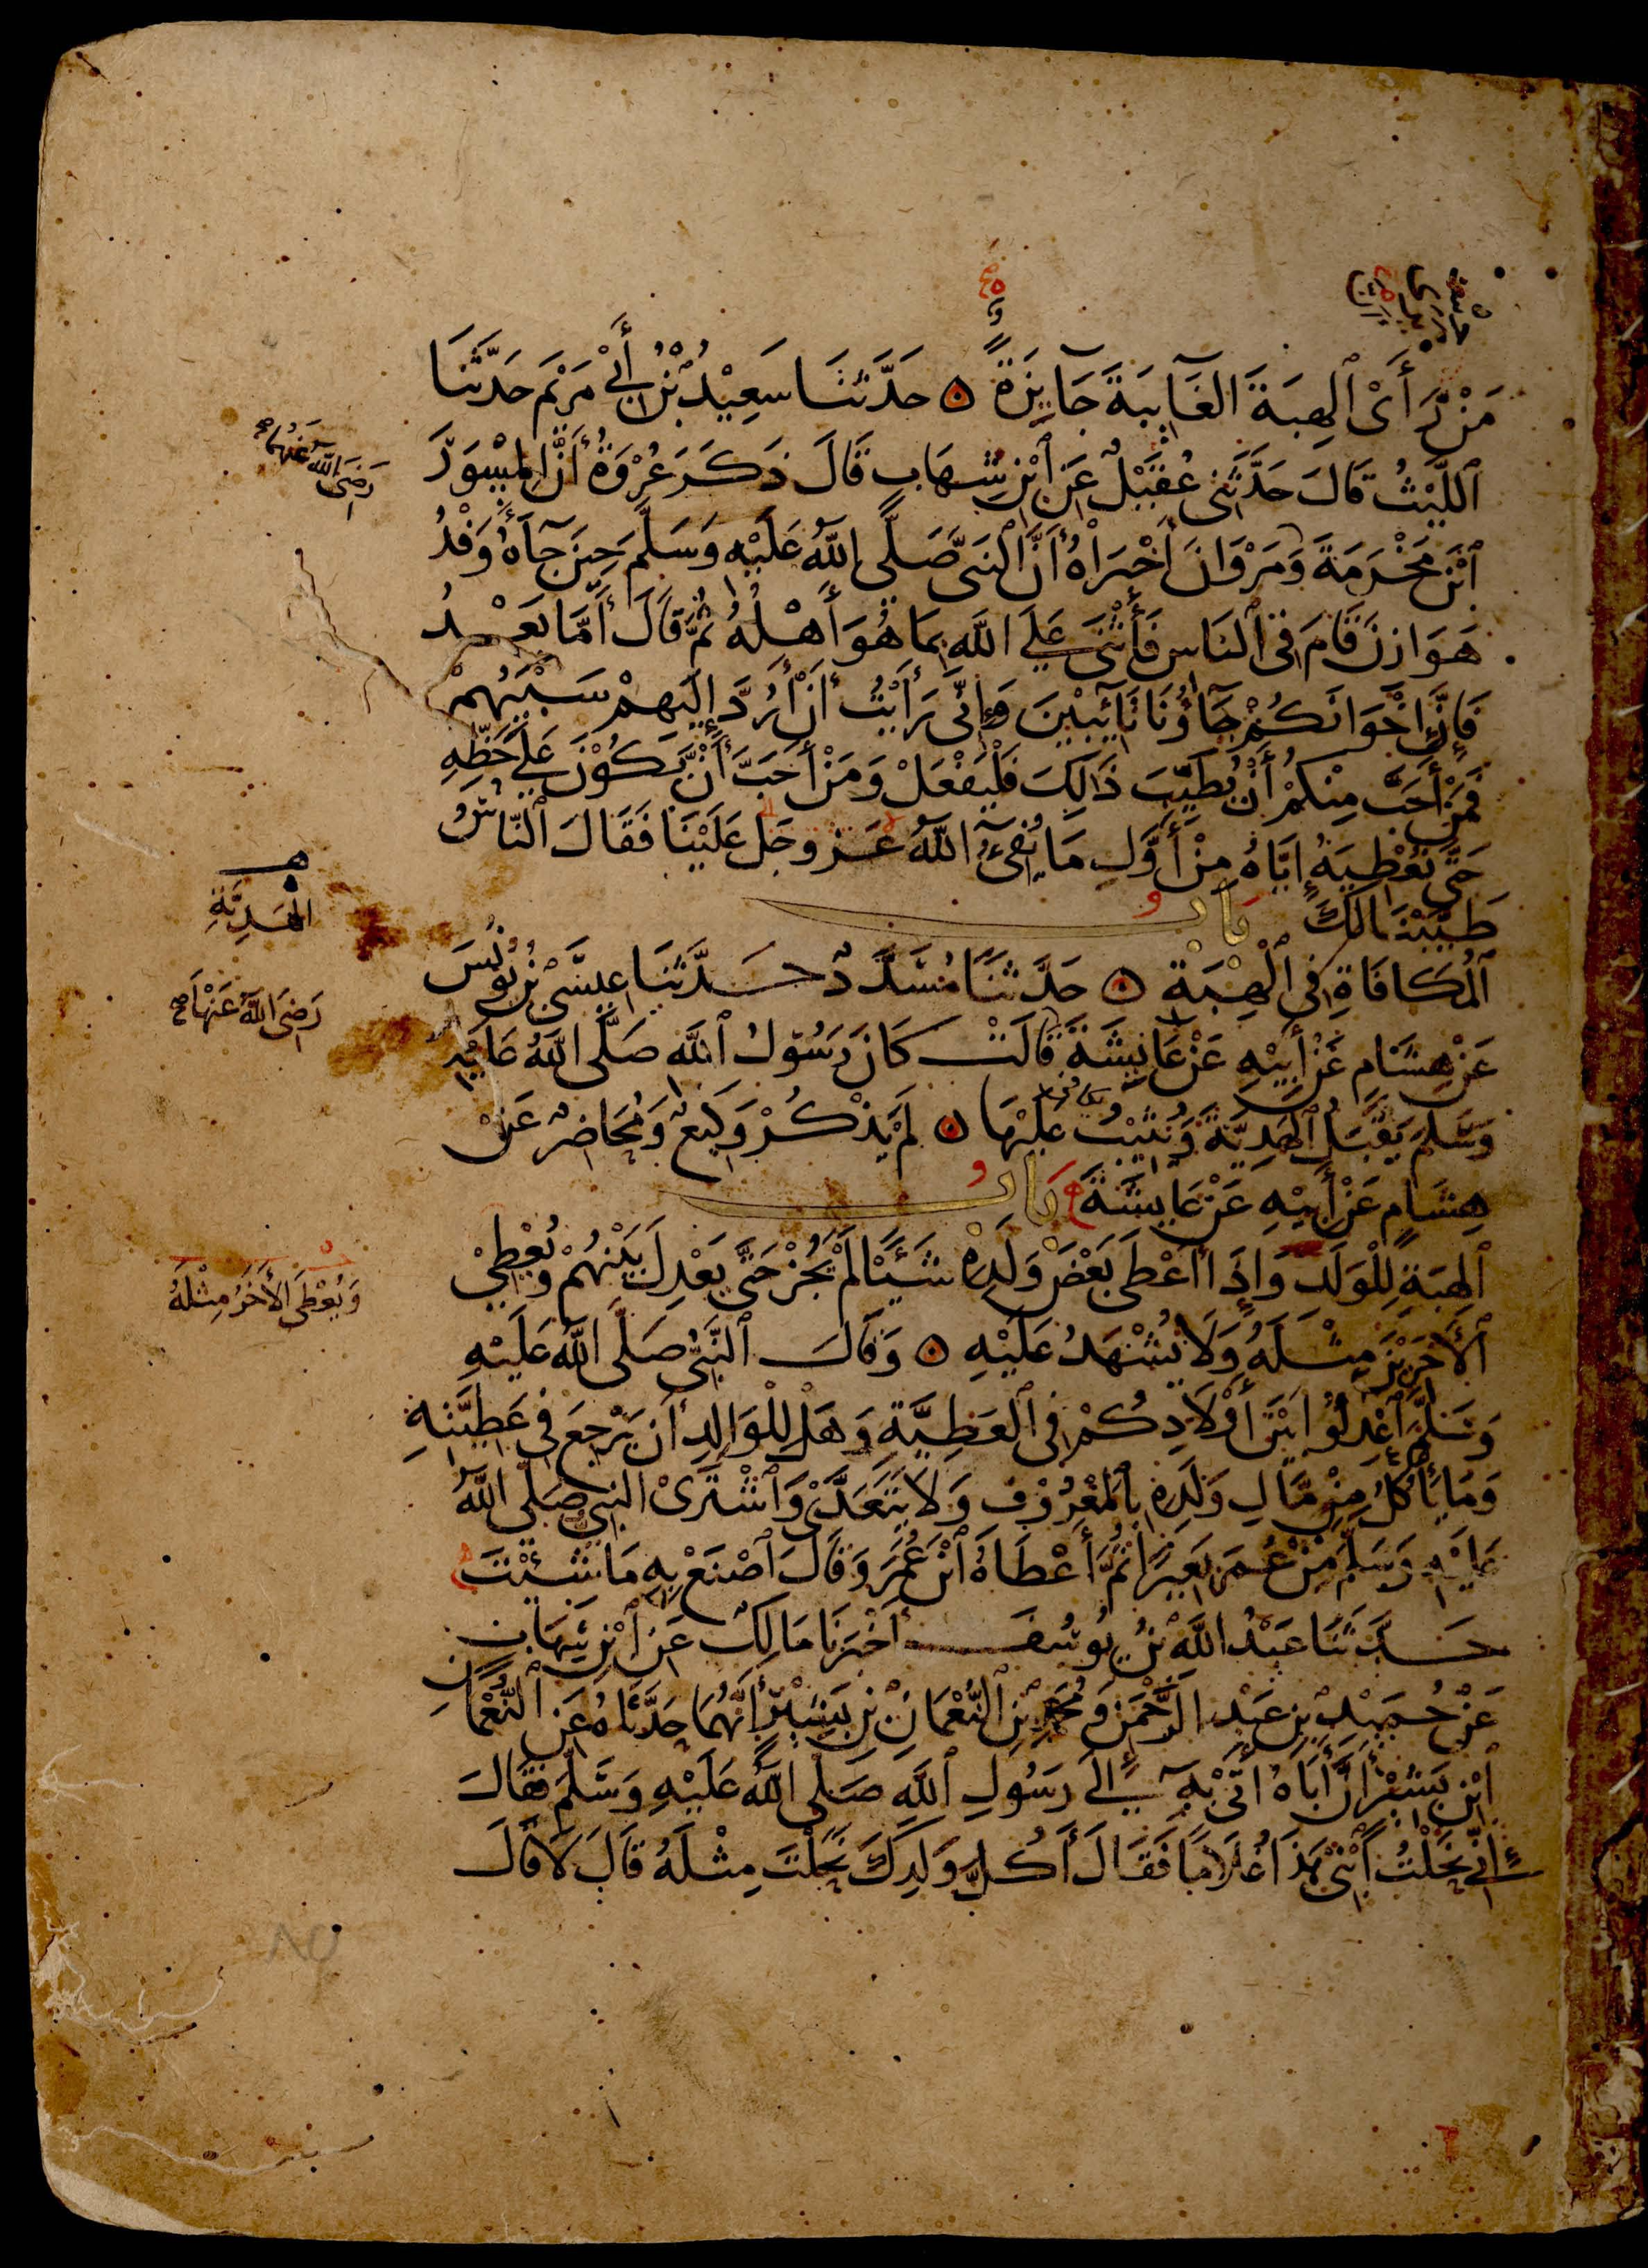 مَنْ رَأَى الْهِبَةَ الْغَايِبَةَ جَايِزَةً ۝ حَدَّثَنَا سَعِيْدُ بْنُ أَبِي مَرْيَمَ حَدَّثَنَا
اللَّيْثُ قَالَ حَدَّثَنِي عُقَيْلٌ عَنِ ابْنِ شِهَابٍ قَالَ ذَكَرَ عُرْوَةُ أَنَّ الْمِسْوَرَ
ابْنَ مَخْرَمَةَ وَمَرْوَانَ أَخْبَرَاهُ أَنَّ النَّبِيَّ صَلَّى اللهُ عَلَيْهِ وَسَلَّمَ حِينَ جَآءَهُ وَفْدُ
هَوَازِنَ قَامَ فِي النَّاسِ فَأَثْنَى عَلَى اللهِ بِمَا هُوَ أَهْلُهُ ثُمَّ قَالَ أَمَّا بَعْدُ
فَإِنَّ إِخْوَانَكُمْ جَآؤُنَا تَآئِبِيْنَ وَإِنِّي رَأَيْتُ أَنْ أَرُدَّ إِلَيْهِمْ سَبْيَهُمْ
فَمَنْ أَحَبَّ مِنْكُمْ أَنْ يُطَيِّبَ ذَالِكَ فَلْيَفْعَلْ وَمَنْ أَحَبَّ أَنْ يَكُوْنَ عَلَى حَظِّهِ
حَتَّى نُعْطِيَهُ إِيَّاهُ مِنْ أَوَّلِ مَا يُفِيءُ اللهُ عَزَّ وَجَلَّ عَلَيْنَا فَقَالَ النَّاسُ
طَيَّبْنَا لَكَ بَابُ
الْمُكَافَاةِ فِي الْهِبَةِ ۝ حَدَّثَنَا مُسَدَّدٌ حَدَّثَنَا عِيسَى بْنُ يُونُسَ
عَنْ هِشَامٍ عَنْ أَبِيْهِ عَنْ عَايِشَةَ قَالَتْ كَانَ رَسُوْلُ اللهِ صَلَّى اللهُ عَلَيْهِ
وَسَلَّمَ يَقْبَلُ الْهَدِيَّةَ وَيُثِيْبُ عَلَيْهَا ۝ لَمْ يَذْكُرْ وَكِيعٌ وَمُحَاضِرٌ عَنْ
هِشَامٍ عَنْ أَبِيْهِ عَنْ عَايِشَةَ بَابُ
الْهِبَةِ لِلْوَلَدِ وَإِذَا أَعْطَى بَعْضَ وَلَدِهِ شَيْئًا لَمْ يَجُزْ حَتَّى يَعْدِلَ بَيْنَهُمْ وَيُعْطِيْ
الْآخَرِيْنَ مِثْلَهُ وَلَا يُشْهَدُ عَلَيْهِ ۝ وَقَالَ النَّبِيُّ صَلَّى اللهُ عَلَيْهِ
وَسَلَّمَ اعْدِلُوا بَيْنَ أَوْلَادِكُمْ فِي الْعَطِيَّةِ وَهَلْ لِلْوَالِدِ أَنْ يَرْجِعَ فِي عَطِيَّتِهِ
وَمَا يَأْكُلُ مِنْ مَالِ وَلَدِهِ بِالْمَعْرُوْفِ وَلَا يَتَعَدَّى وَاشْتَرَى النَّبِيُّ صَلَّى اللهُ
عَلَيْهِ وَسَلَّمَ مِنْ عُمَرَ بَعِيرًا ثُمَّ أَعْطَاهُ ابْنَ عُمَرَ وَقَالَ اصْنَعْ بِهِ مَا شِئْتَ
حَدَّثَنَا عَبْدُ اللهِ بْنُ يُوسُفَ أَخْبَرَنَا مَالِكٌ عَنِ ابْنِ شِهَابٍ
عَنْ حُمَيْدِ بْنِ عَبْدِ الرَّحْمَنِ وَمُحَمَّدِ بْنِ النُّعْمَانِ بْنِ بَشِيْرٍ أَنَّهُمَا حَدَّثَاهُ عَنِ النُّعْمَانِ
ابْنِ بَشِيْرٍ أَنَّ أَبَاهُ أَتَى بِهِ إِلَى رَسُولِ اللهِ صَلَّى اللهُ عَلَيْهِ وَسَلَّمَ فَقَالَ
إِنِّي نَحَلْتُ ابْنِي هَذَا غُلَامًا فَقَالَ أَكُلَّ وَلَدِكَ نَحَلْتَ مِثْلَهُ قَالَ لَا قَالَ
رَضِيَ اللهُ عَنْهُمَا
الْهَدِيَّةِ
رَضِيَ اللهُ عَنْهَا
وَيُعْطَى الْآخَرُ مِثْلَهُ